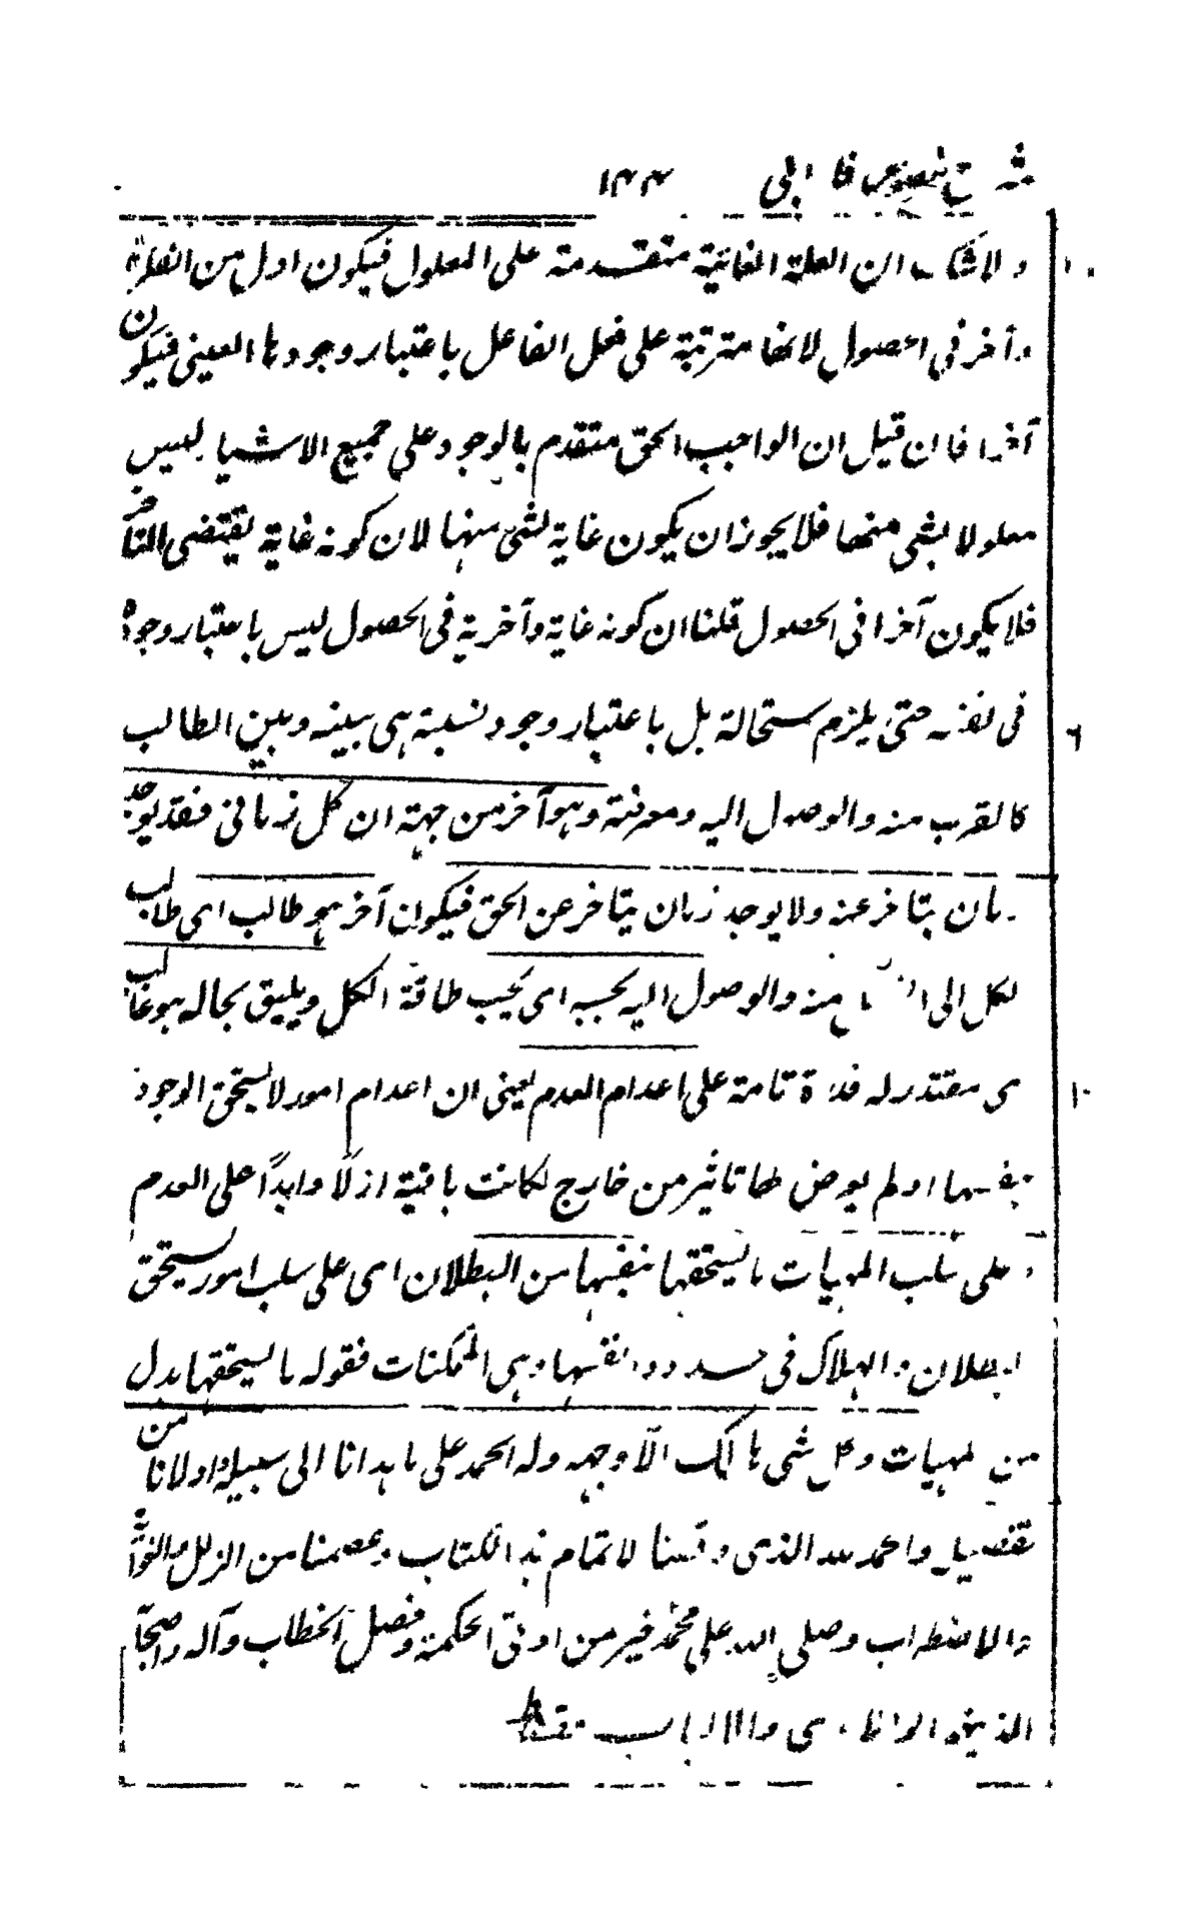 شرح فصوص فارابى ١٤٤
ولا شك ان العلة الغائية متقدمة على المعلول فيكون اول من الفكرة
وآخر فى الحصول لانها مترتبة على فعل الفاعل باعتبار وجودها العينى فيكون
آخرا فان قيل ان الواجب الحق متقدم بالوجود على جميع الاشيا ليس
معلولا بشى منها فلا يجوز ان يكون غاية لشى منها لان كونه غاية يقتضى التأخر
فلا يكون آخرا فى الحصول قلنا ان كونه غاية وآخرية فى الحصول ليس باعتبار وجوده
فى نفسه حتى يلزم استحالة بل باعتبار وجود نسبة هى بينه وبين الطالب
كالقرب منه والوصول اليه ومعرفته وهو آخر من جهة ان كل زمانى فقد يوجد
زمان يتاخر عنه ولا يوجد زمان يتاخر عن الحق فيكون آخر هو طالب اى طالب
لكل الى منه والوصول اليه بحسبه اى بحسب طاقة الكل ويليق بحاله هو غالب
اى مقتدر له قدرة تامة على اعدام العدم يعنى ان اعدام امور لا يستحق الوجود
بنفسها ولم يعرض لها تاثير من خارج لكانت باقية ازلًا وابدًا على العدم
وعلى سلب المهيات ما يستحقها بنفسها من البطلان اى على سلب امور يستحق
البطلان والهلاك فى حدود انفسها وهى الممكنات فقوله ما يستحقها بدل
من المهيات وكل شى هالك الّا وجهه وله الحمد على ما هدانا الى سبيله واولانا من
تفضيله والحمد لله الذى وفقنا لاتمام هذا الكتاب وعصمنا من الزلل والغواية
والاضطراب وصلى الله على محمد خير من اوتى الحكمة وفصل الخطاب وآله واصحابه
الذين هم والالباب فقط